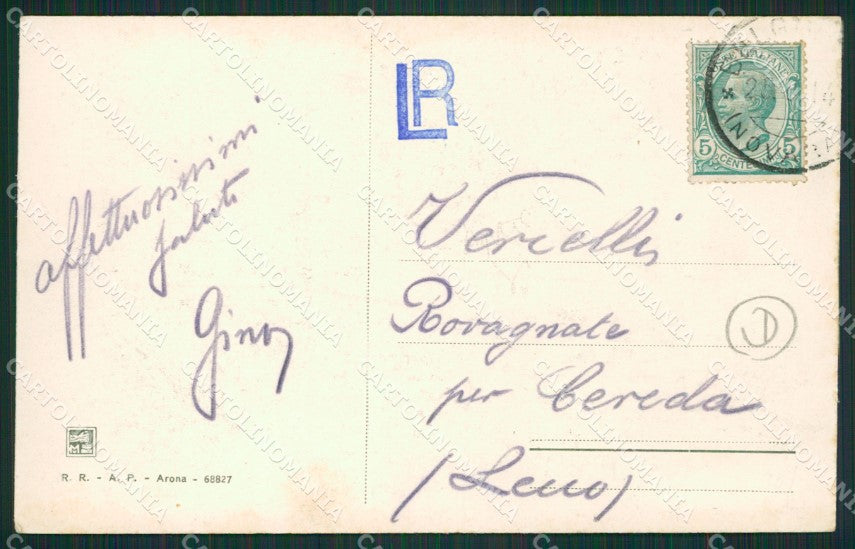 affettuosissimi
saluti
Gino
R. R. - A. P. - Arona - 68827
LR
5 CENTES 5
(NOVARA)
Vercelli
Rovagnate
per Cereda
(Lecco)
CARTOLINOMANIA